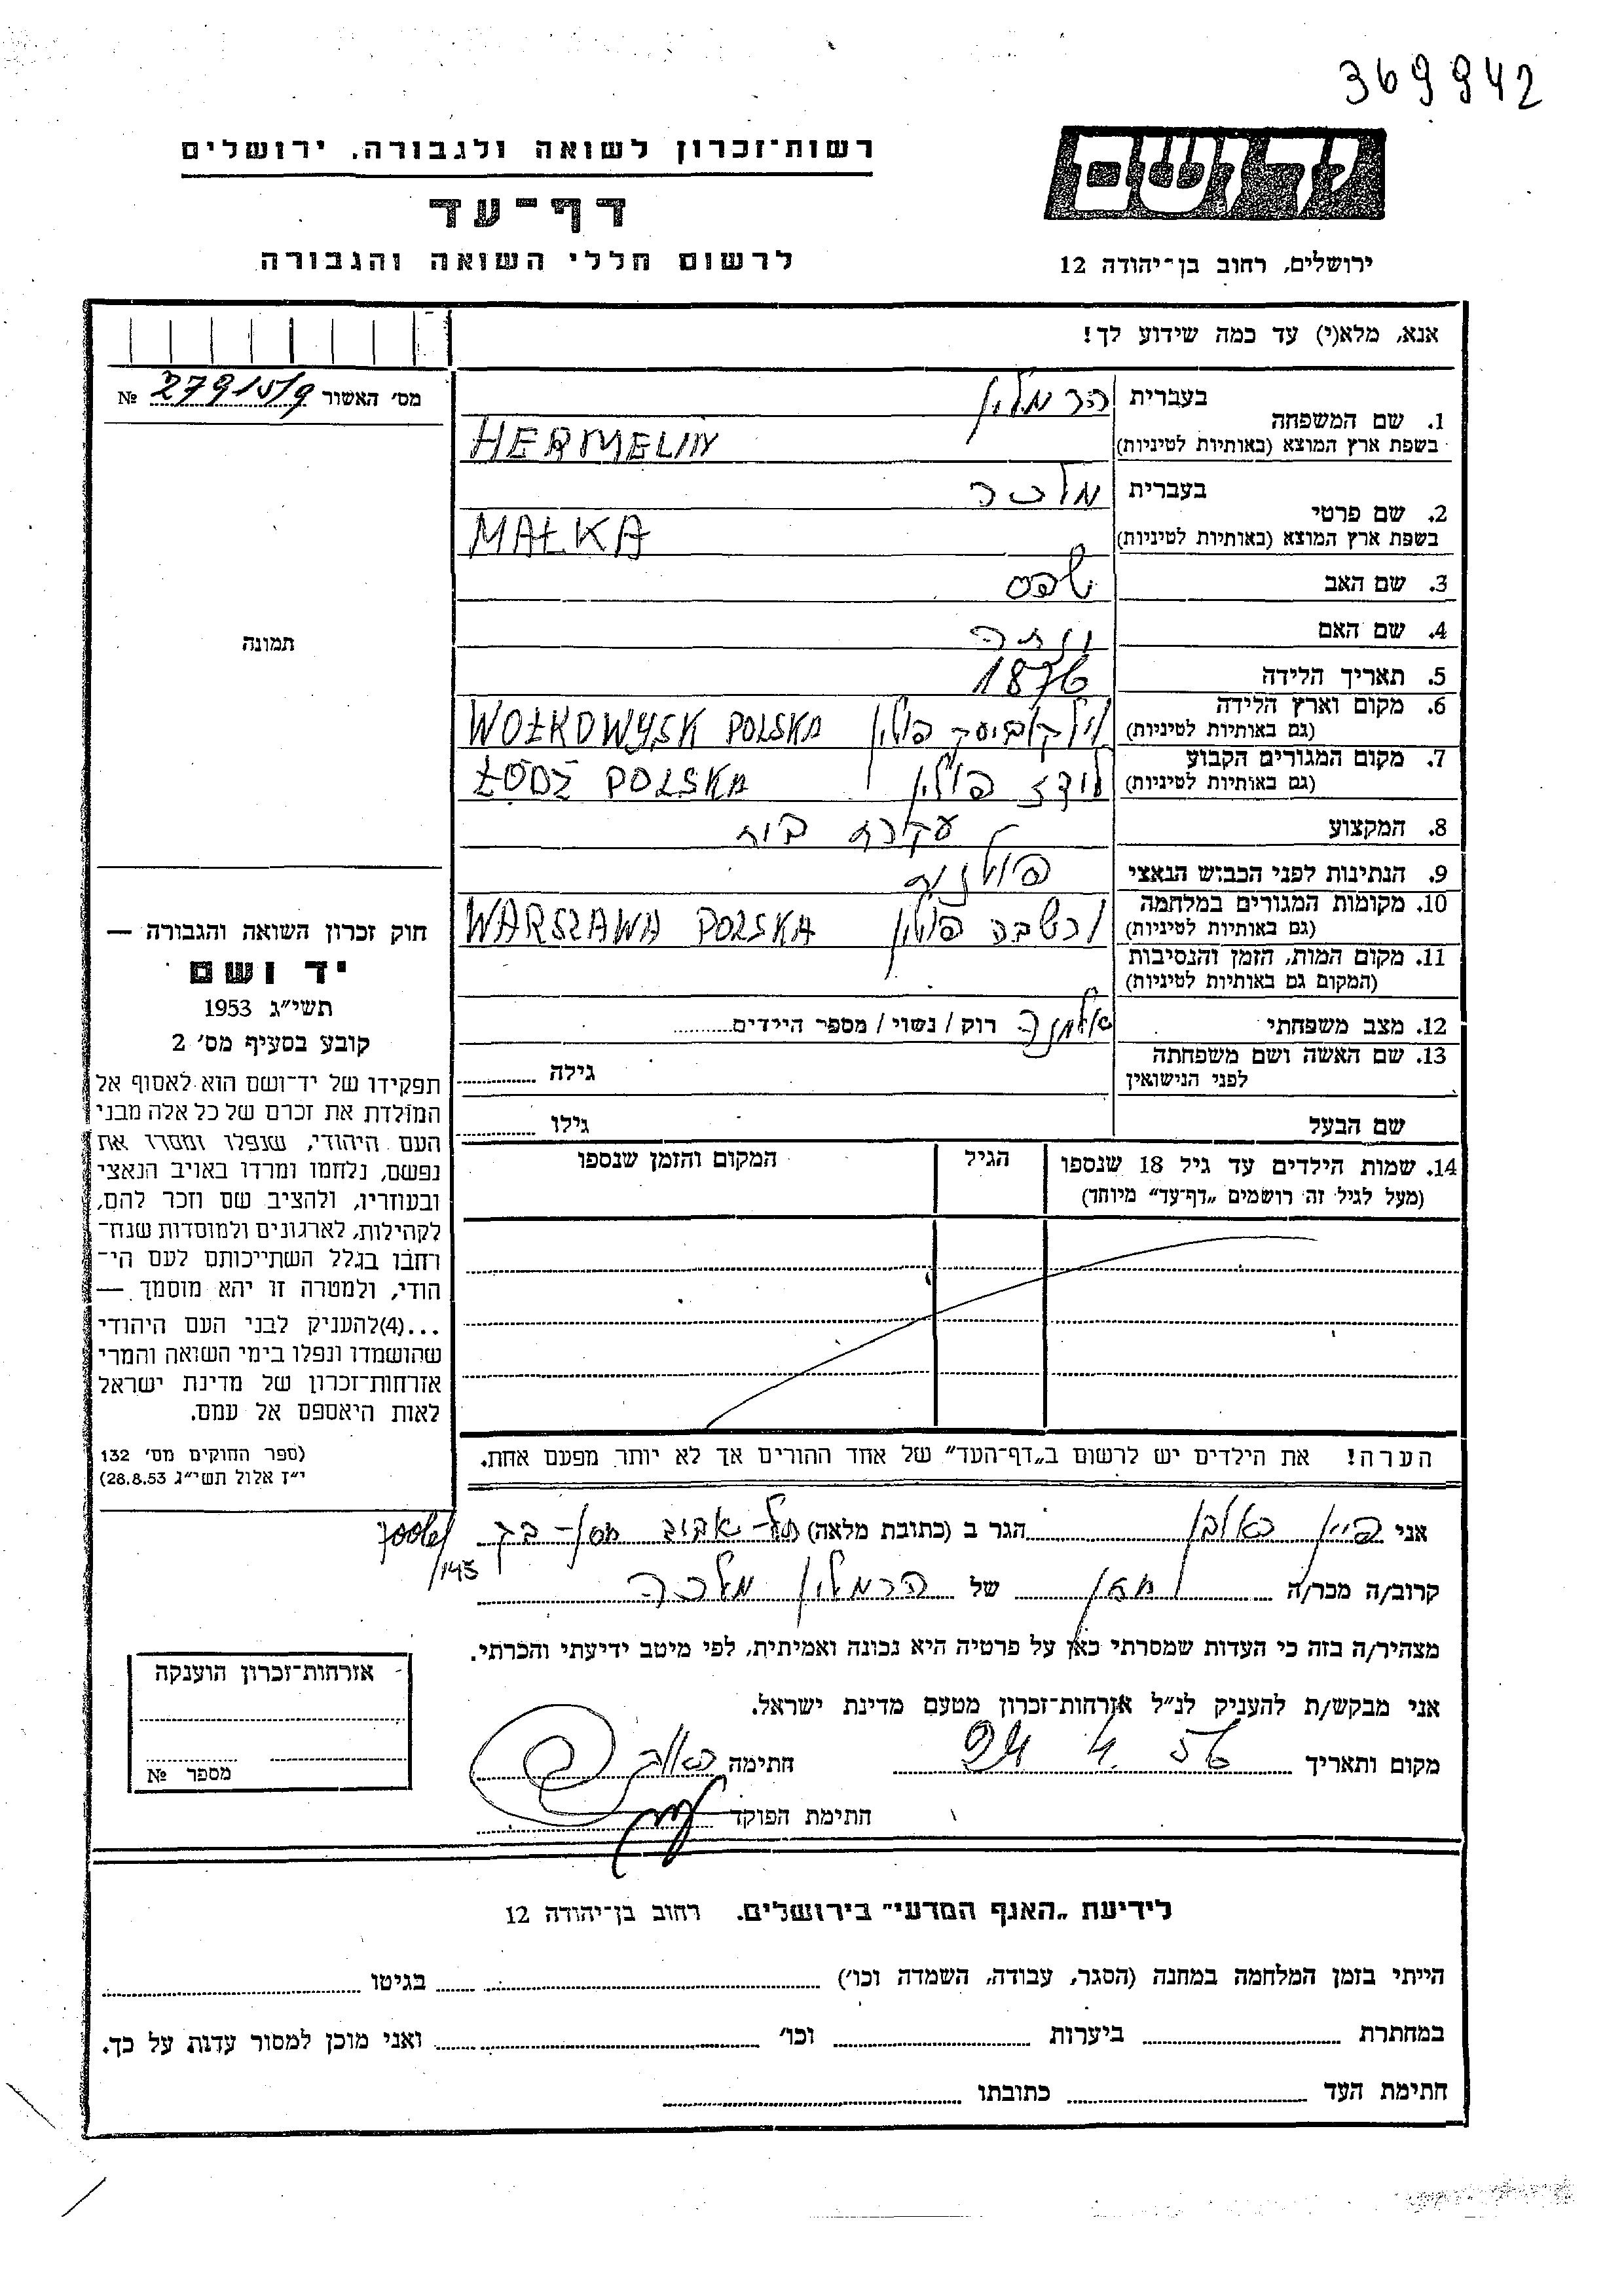 369942
יד ושם
רשות־זכרון לשואה ולגבורה, ירושלים
דף־עד
לרשום חללי השואה והגבורה
ירושלים, רחוב בן־יהודה 12
אנא, מלא(י) עד כמה שידוע לך!
מס׳ האשור № 27915/9
1. שם המשפחה
בעברית הרמלין
בשפת ארץ המוצא (באותיות לטיניות) HERMELIN
2. שם פרטי
בעברית מלכה
בשפת ארץ המוצא (באותיות לטיניות) MAŁKA
3. שם האב
4. שם האם
5. תאריך הלידה 1876
6. מקום וארץ הלידה
(גם באותיות לטיניות) פולין WOŁKOWYSK POLSKA
7. מקום המגורים הקבוע
(גם באותיות לטיניות) לודז פולין ŁÓDŹ POLSKA
8. המקצוע עקרת בית
9. הנתינות לפני הכבוש הנאצי פולנית
10. מקומות המגורים במלחמה
(גם באותיות לטיניות) ורשבה פולין WARSZAWA POLSKA
11. מקום המות, הזמן והנסיבות
(המקום גם באותיות לטיניות)
12. מצב משפחתי אלמנה רוק / נשוי / מספר הילדים
13. שם האשה ושם משפחתה
לפני הנישואין גילה
שם הבעל גילו
14. שמות הילדים עד גיל 18 שנספו הגיל המקום והזמן שנספו
(מעל לגיל זה רושמים „דף־עד״ מיוחד)
תמונה
חוק זכרון השואה והגבורה —
יד ושם
תשי״ג 1953
קובע בסעיף מס׳ 2
תפקידו של יד־ושם הוא לאסוף אל
המולדת את זכרם של כל אלה מבני
העם היהודי, שנפלו ומסרו את
נפשם, נלחמו ומרדו באויב הנאצי
ובעוזריו, ולהציב שם וזכר להם,
לקהילות, לארגונים ולמוסדות שנח־
רבו בגלל השתייכותם לעם הי־
הודי, ולמטרה זו יהא מוסמך —
...(4)להעניק לבני העם היהודי
שהושמדו ונפלו בימי השואה והמרי
אזרחות־זכרון של מדינת ישראל
לאות היאספם אל עמם.
(ספר החוקים מס׳ 132
י״ז אלול תשי״ג 28.8.53)
הערה! את הילדים יש לרשום ב„דף־העד״ של אחד ההורים אך לא יותר מפעם אחת.
אני הגר ב (כתובת מלאה) תל־אביב
145/
קרוב/ה מכר/ה חתן של הרמלין מלכה
מצהיר/ה בזה כי העדות שמסרתי כאן על פרטיה היא נכונה ואמיתית, לפי מיטב ידיעתי והכרתי.
אני מבקש/ת להעניק לנ״ל אזרחות־זכרון מטעם מדינת ישראל.
מקום ותאריך 24 4. 56 חתימה
חתימת הפוקד
אזרחות־זכרון הוענקה
מספר №
לידיעת „האגף המדעי״ בירושלים. רחוב בן־יהודה 12
הייתי בזמן המלחמה במחנה (הסגר, עבודה, השמדה וכו׳) בגיטו
במחתרת ביערות וכו׳ ואני מוכן למסור עדות על כך.
חתימת העד כתובתו